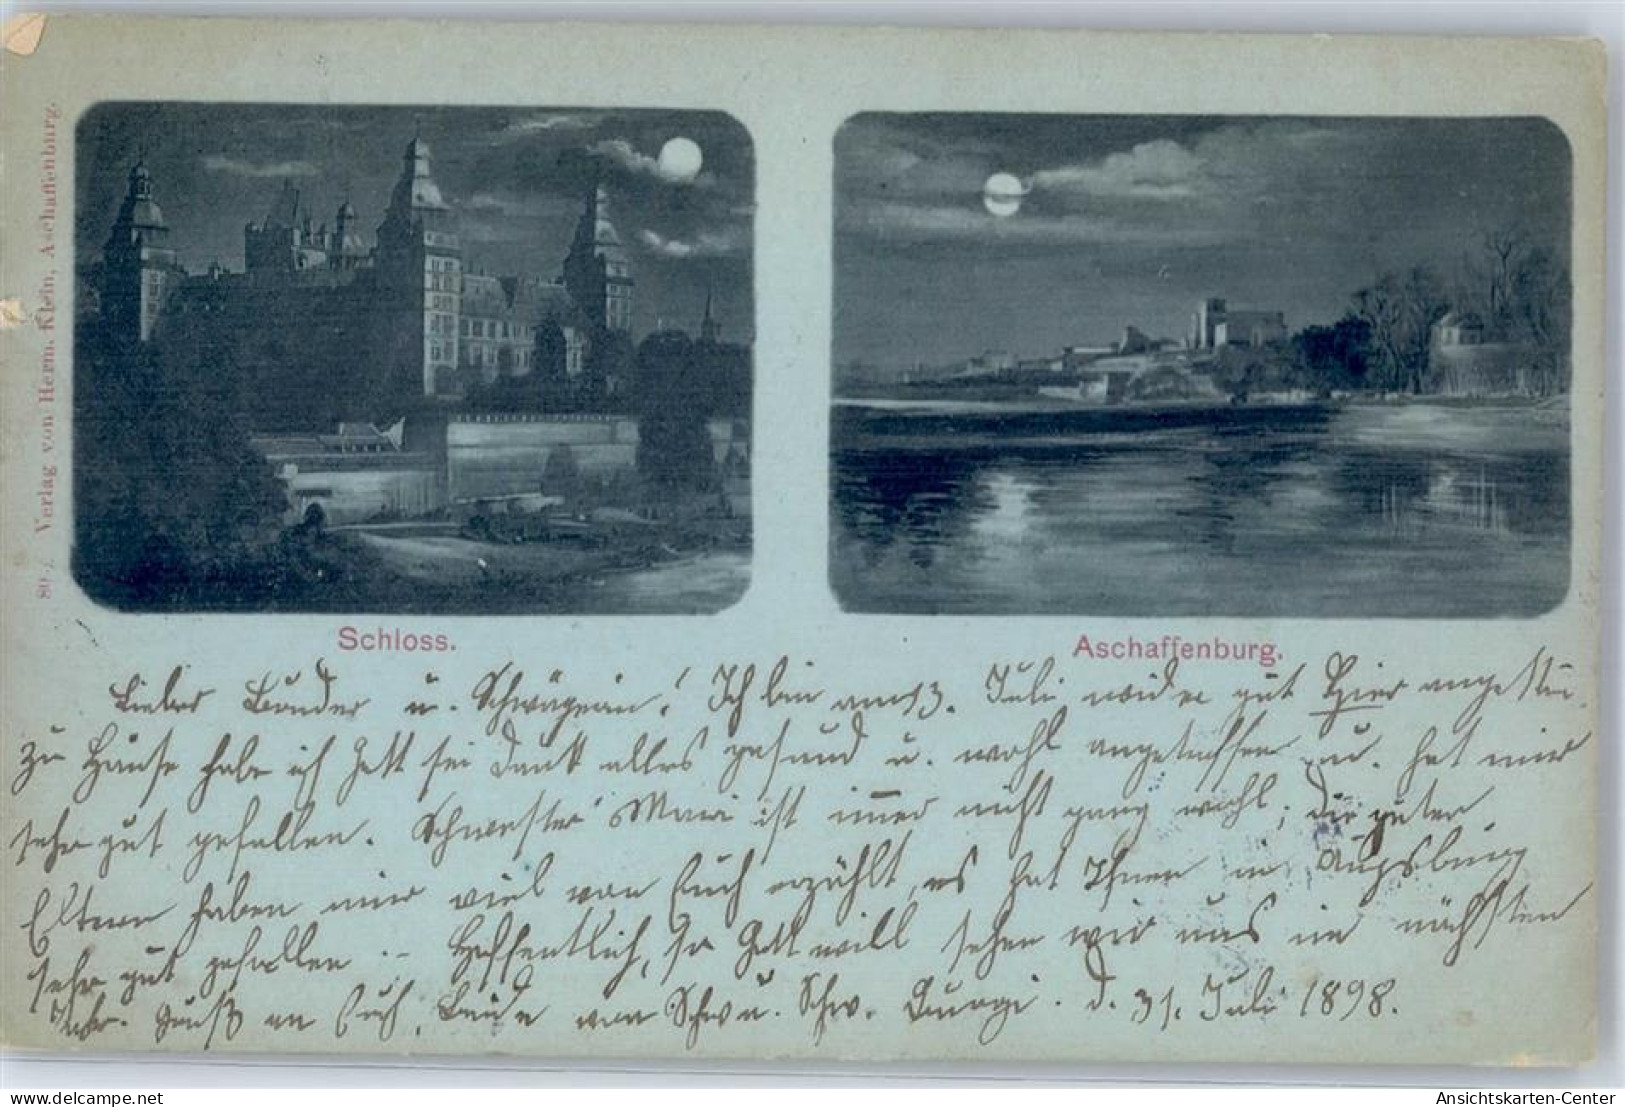 Verlag von Herm. Klein, Aschaffenburg.
Schloss.
Aschaffenburg.
Lieber Bruder u. Schwägerin! Ich bin am 13. Juli wieder gut hier angekom.
zu Hause habe ich Gott sei Dank alles gesund u. wohl angetroffen u. hat mir
sehr gut gefallen. Schwester Marie ist immer nicht ganz wohl; die guten
Eltern haben mir viel von Euch erzählt, es hat Ihnen in Augsburg
sehr gut gefallen. – Hoffentlich, so Gott will sehen wir uns im nächsten
Jahr. Gruß an Euch, Beide von Schw u. Schw. d. 31. Juli 1898.
delcampe.net
Ansichtskarten-Center